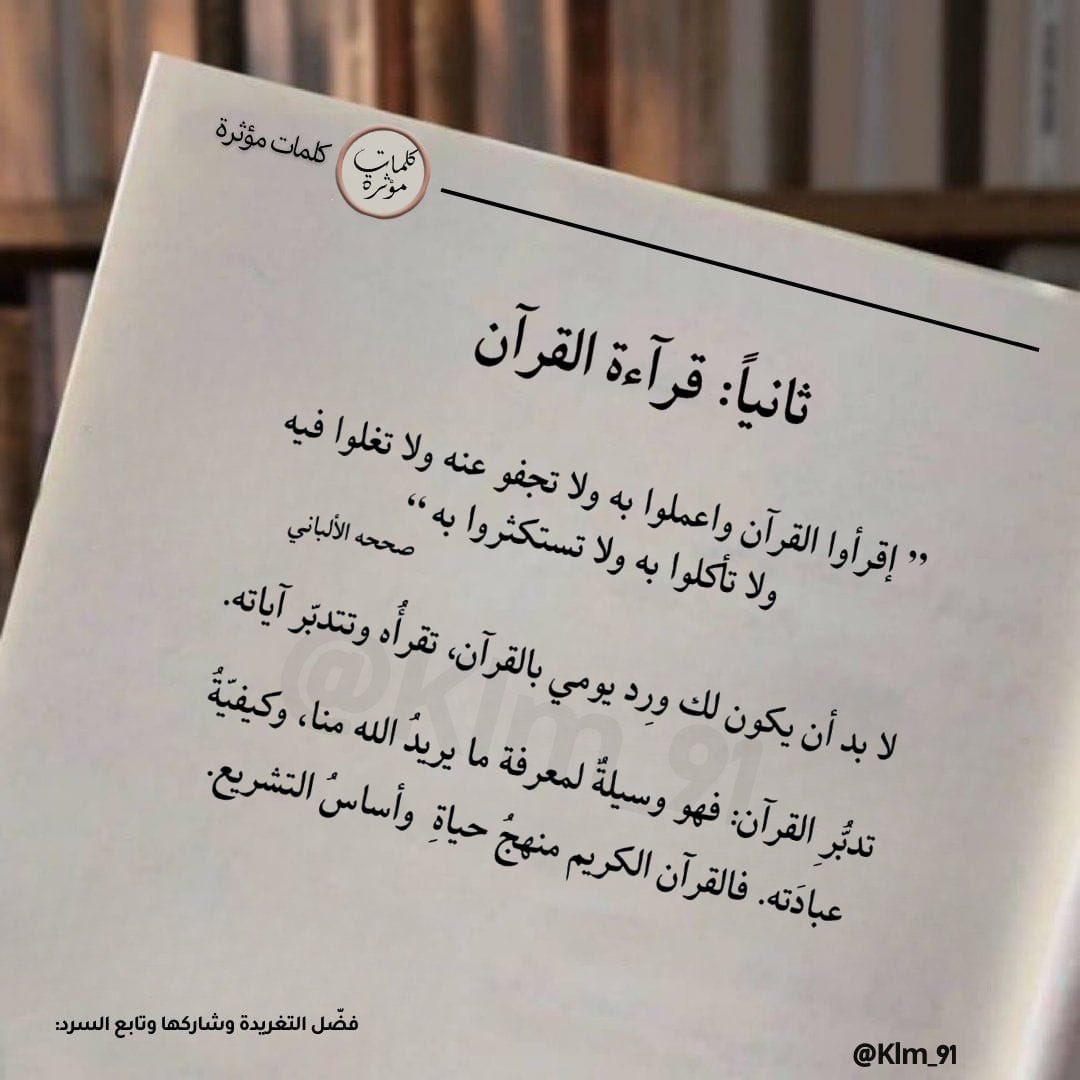 كلمات مؤثرة
كلمات
مؤثرة
ثانياً: قرآءة القرآن
” إقرأوا القرآن واعملوا به ولا تجفو عنه ولا تغلوا فيه
ولا تأكلوا به ولا تستكثروا به “
صححه الألباني
لا بد أن يكون لك وِرِد يومي بالقرآن، تقرأُه وتتدبّر آياته.
تدبُّرِ القرآن: فهو وسيلةٌ لمعرفة ما يريدُ الله منا، وكيفيّةُ
عبادَته. فالقرآن الكريم منهجُ حياةِ وأساسُ التشريع.
@Klm_91
فضّل التغريدة وشاركها وتابع السرد:
@Klm_91